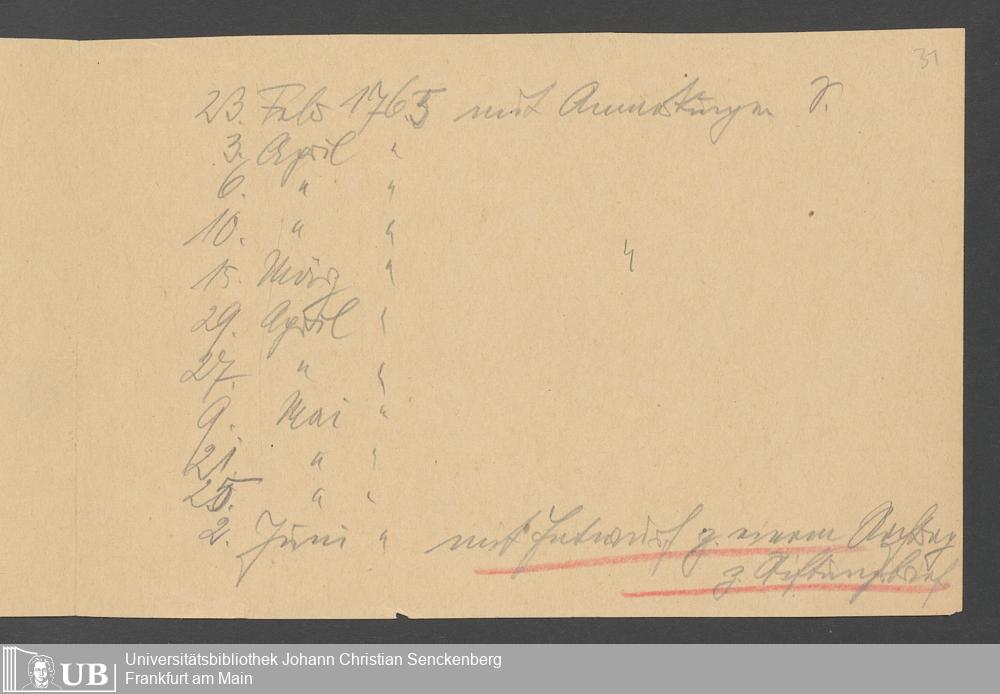 31
23. Feb 1765 mit Anmerkungen S.
3. April "
6. " "
10. " "
15. März " "
29. April "
27. " "
9. Mai "
21. " "
25. " "
2. Juni " mit Entwurf z. einem Nachtrag
z. Stiftungsbrief
UB
Universitätsbibliothek Johann Christian Senckenberg
Frankfurt am Main